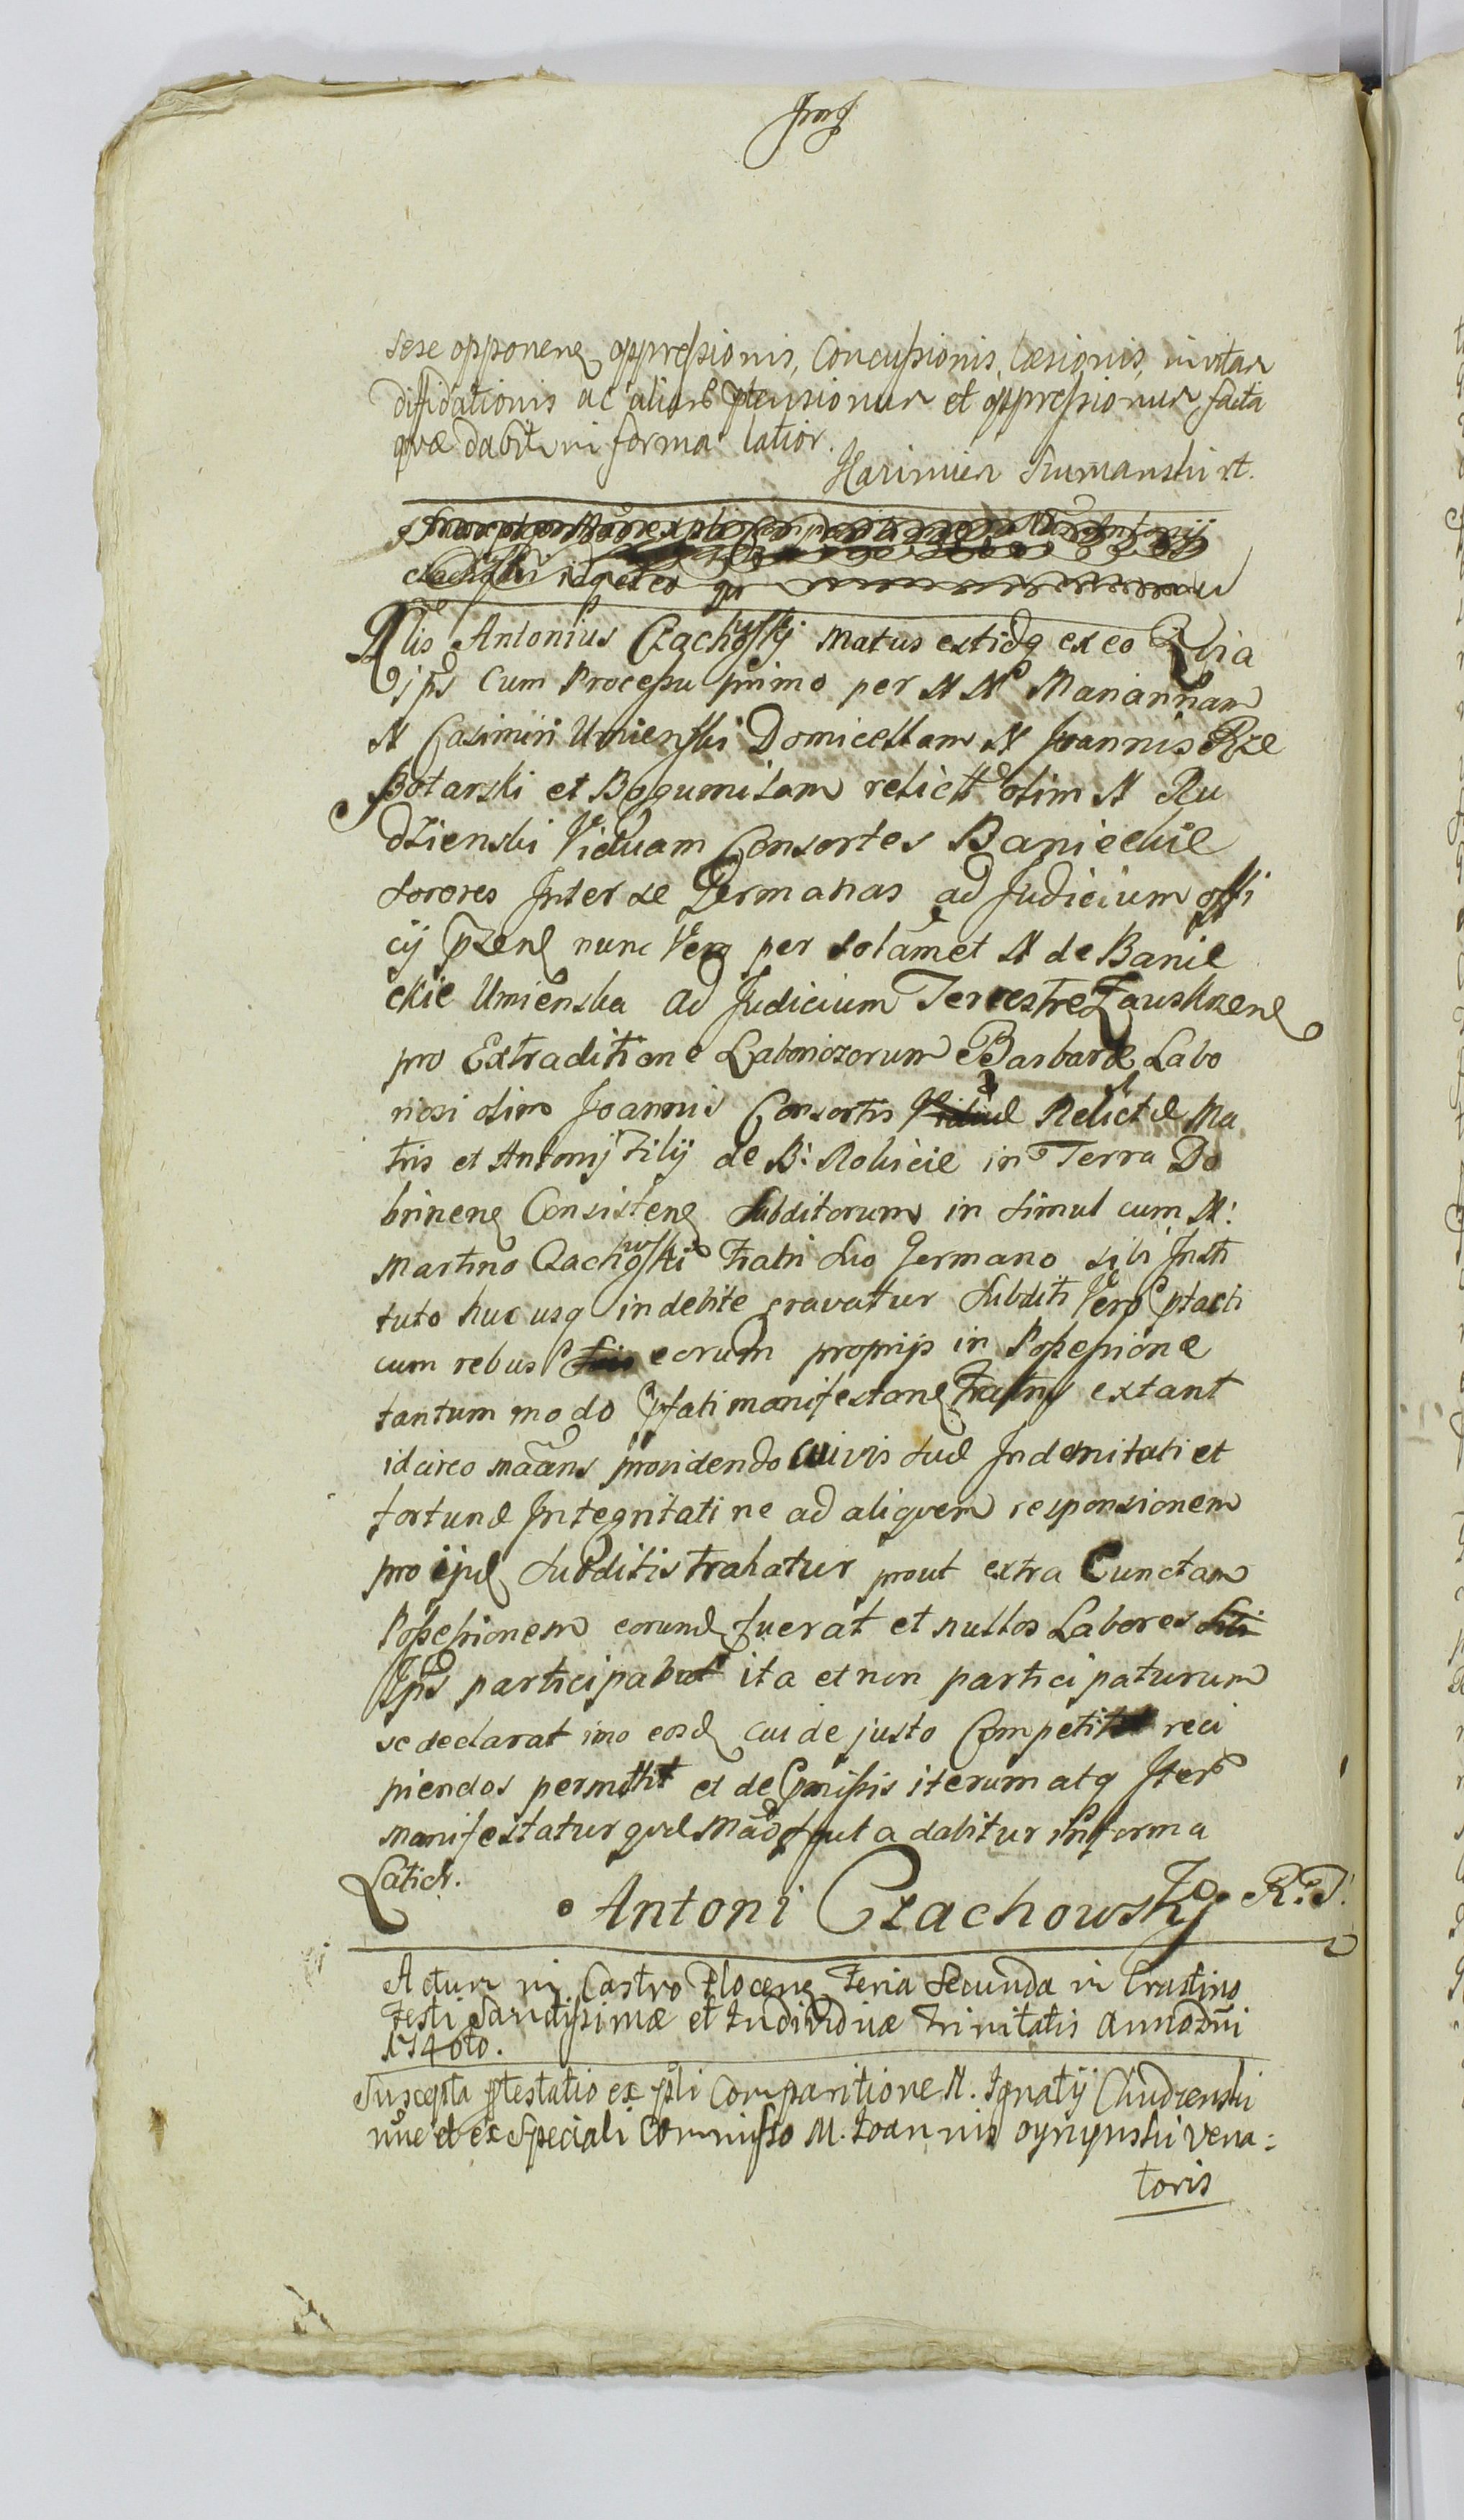 sese opponenę oppressionis, Concussionis, læsionis, invitar
diffidationis ac aliar ptensionum et oppressionum facta
quæ dabitur in forma latior.
Kazimierz Rumanski rt.
Nlis Antonius Czachowskij Matus est idq ex eo Quia
ips Cum Processu primo per N N Mariannam
N Casimiri Umienski Domicellam N Joannis Rze
szotarski et Bogumilam relict olim N Ru
dzienski Viduam Consortes Banieckie
sorores Inter se Germanas ad Judicium offi
cij pzenę nunc Vero per solamet N de Banie
ckie Umienska ad Judicium Terrestre Zauskrzenę
pro Extraditione Laboriosorum Barbaræ Labo
riosi olim Joannis Consortis Relictæ Ma
tris et Antonij Filij de B: Rokicie in Terra Do
brinenę Consistenę subditorum in simul cum N:
Martino Czachowski Fratri suo Germano sibi Insti
tuto huc usq indebite gravatur subditi Vero ptacti
cum rebus eorum proprijs in Possessione
tantum modo pfati manifestanę Fratris extant
idcirco maans providendo cuivis suæ Indemnitati et
fortunæ Integritati ne ad aliquem responsionem
pro ijsdę subditis trahatur prout extra Cunctam
Possessionem eorundę fuerat et nullos Labores
Ips participabat ita et non participaturum
se declarat imo eosdę cui de justo Competit reci
piendos permittit et de pmissis iterum atq Iter
manifestatur quæ mado facta dabitur in forma
Latior.
Antoni Czachowsky R.T.
Actum in Castro Plocenę Feria Secunda in Crastino
Festi Sanctissimæ et Individuæ Trinitatis Anno Dni
1740to.
Suscepta ptestatio ex psli Comparitione N. Ignatij Chudzenski
nne et ex Speciali Commisso M. Joannis Vena:
toris